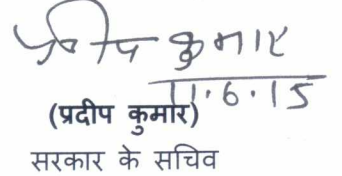 प्रदीप कुमार
11.6.15
(प्रदीप कुमार)
सरकार के सचिव